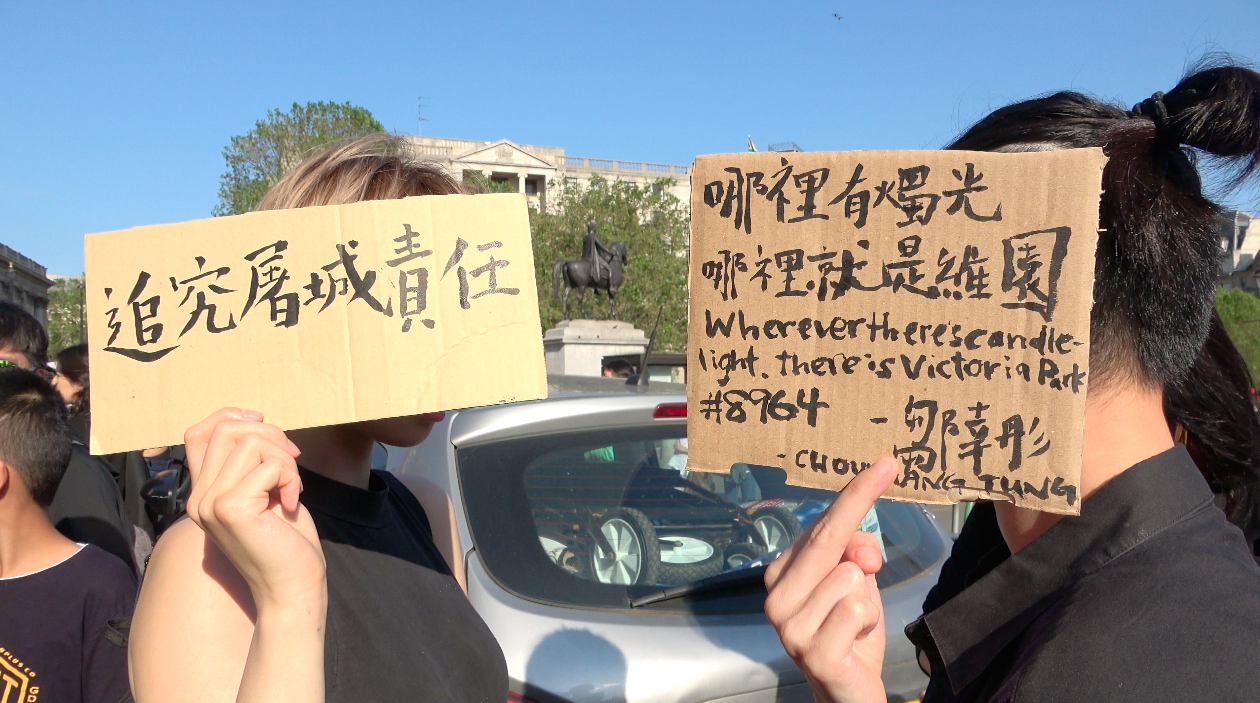 追究屠城責任
哪裡有燭光
哪裡就是維園
Wherever there's candle-
light, there is Victoria Park
#8964
-鄒幸彤
-CHOW ANG TUNG